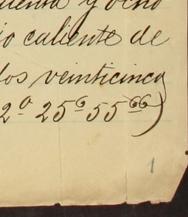 cuenta y ocho
io caliente de
dos veinticinco
2º 25⁶ 55⁶⁶)
1